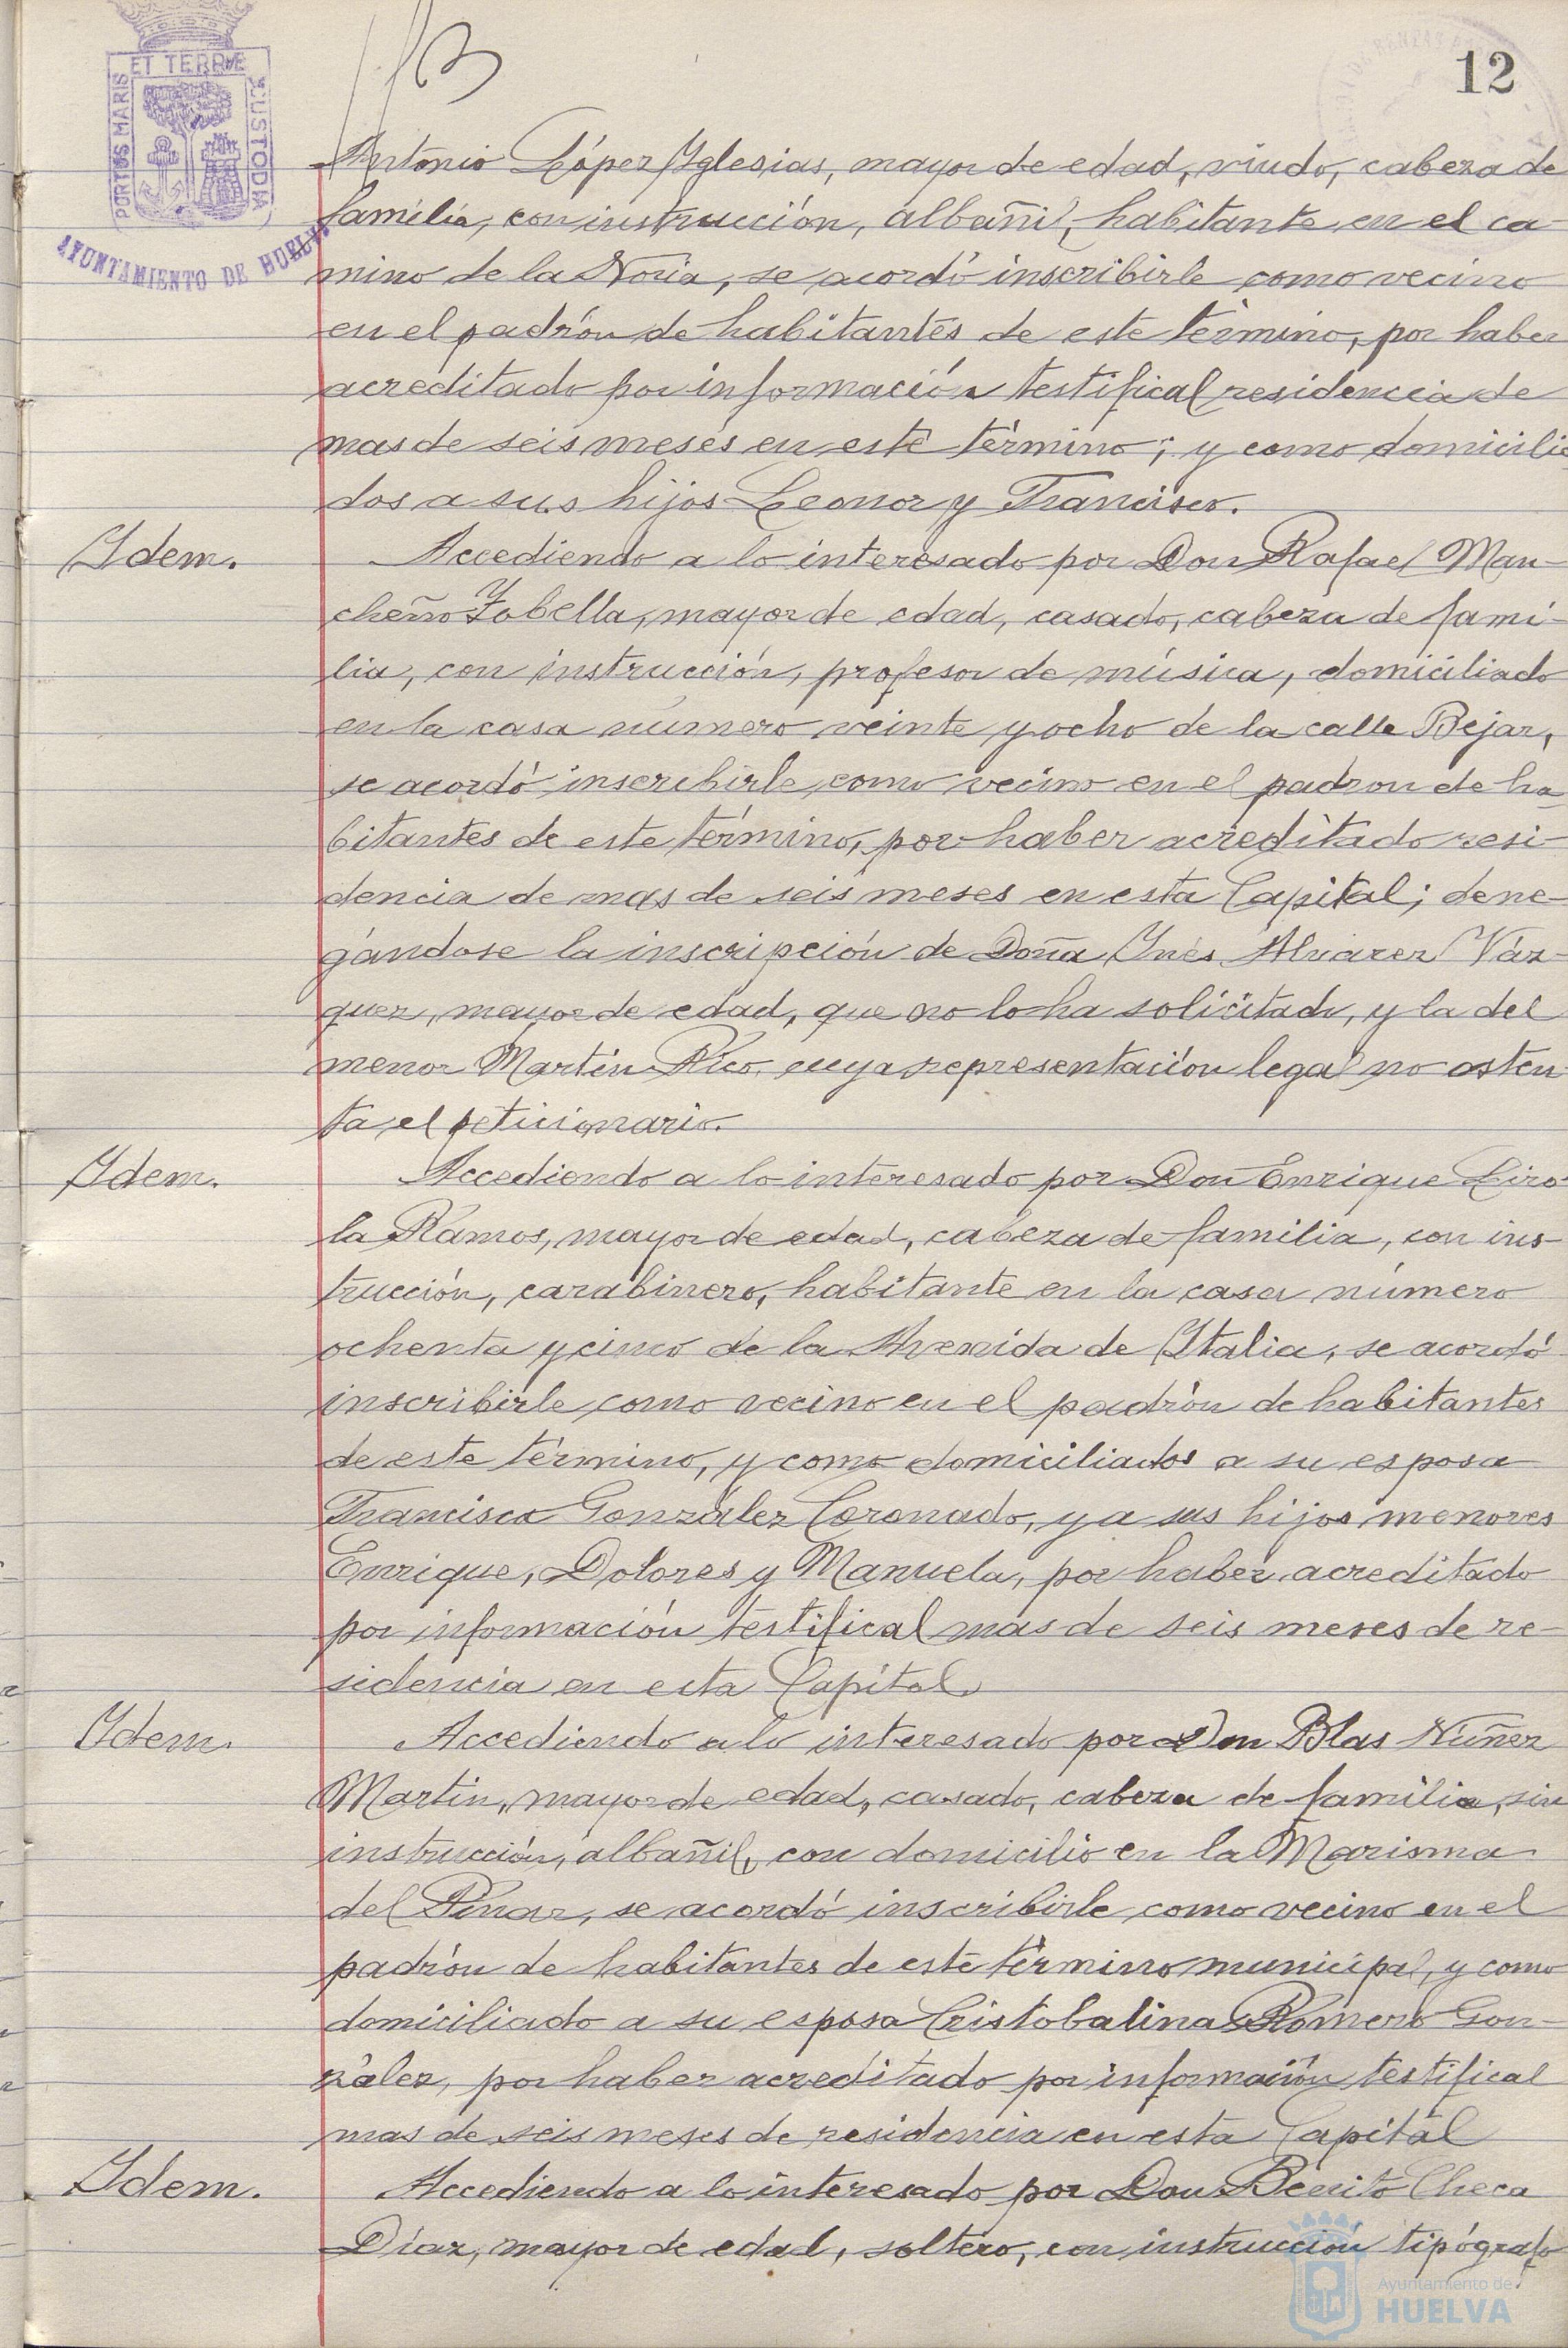 12
PORTUS MARIS ET TERRÆ CUSTODIA
AYUNTAMIENTO DE HUELVA
Antonio López Yglesias, mayor de edad, viudo, cabeza de
familia, con instrucción, albañil, habitante en el ca
mino de la Noria, se acordó inscribirle como vecino
en el padrón de habitantes de este término, por haber
acreditado por información testifical residencia de
mas de seis meses en este término; y como domicilia
dos a sus hijos Leonor y Francisco.
Ydem. Accediendo a lo interesado por Don Rafael Man-
cheño Yobella, mayor de edad, casado, cabeza de fami-
lia, con instrucción, profesor de música, domiciliado
en la casa número veinte y ocho de la calle Bejar,
se acordó inscribirle como vecino en el padron de ha
bitantes de este término, por haber acreditado resi-
dencia de mas de seis meses en esta Capital; dene-
gándose la inscripción de Doña Ynés Alvarez Váz-
quez, mayor de edad, que no lo ha solicitado, y la del
menor Martín Rico, cuya representación legal no osten
ta el peticionario.
Ydem. Accediendo a lo interesado por Don Enrique Liro
la Ramos, mayor de edad, cabeza de familia, con ins-
trucción, carabinero, habitante en la casa número
ochenta y cinco de la Avenida de Ytalia, se acordó
inscribirle como vecino en el padrón de habitantes
de este término, y como domiciliados a su esposa
Francisca González Coronado, y a sus hijos menores
Enrique, Dolores y Manuela, por haber acreditado
por información testifical mas de seis meses de re-
sidencia en esta Capital.
Ydem. Accediendo a lo interesado por Don Blas Núñez
Martin, mayor de edad, casado, cabeza de familia, sin
instrucción, albañil, con domicilio en la Marisma
del Pinar, se acordó inscribirle como vecino en el
padrón de habitantes de este término municipal, y como
domiciliado a su esposa Cristobalina Romero Gon-
zález, por haber acreditado por información testifical
mas de seis meses de residencia en esta Capital
Ydem. Accediendo a lo interesado por Don Benito Checa
Díaz, mayor de edad, soltero, con instrucción tipógrafo
Ayuntamiento de
HUELVA